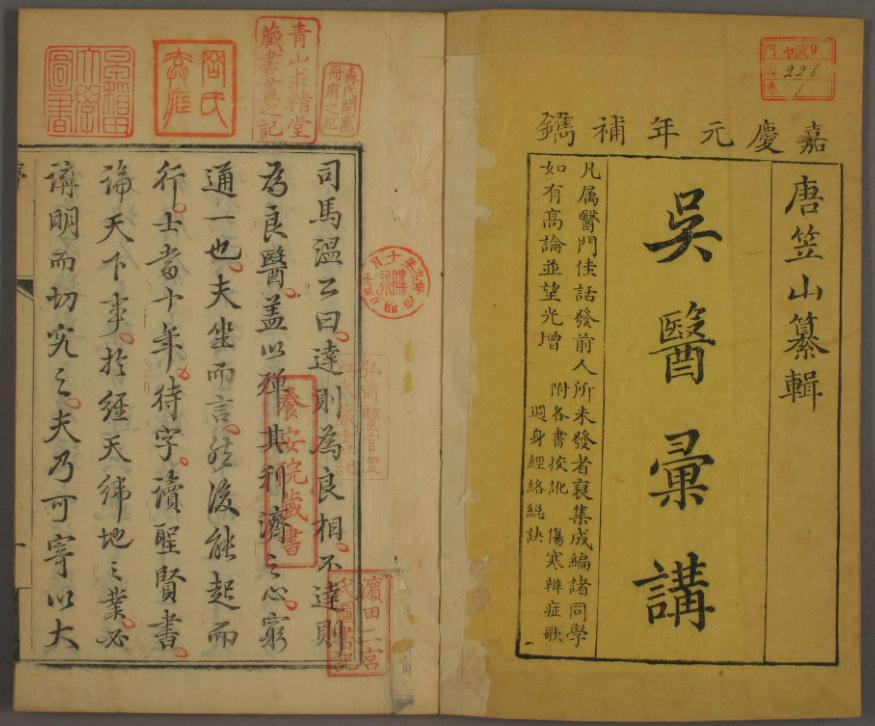 嘉慶元年補鐫
唐笠山纂輯
吳醫彚講
凡属醫門佳話發前人所未發者裒集成編諸同學
如有高論並望光增 附各書挍訛 傷寒辨症歌
週身經絡總訣
226
1
司馬溫公曰達則為良相不達則
為良醫蓋以殫其利濟之心窮
通一也夫坐而言然後能起而
行士當十年待字讀聖賢書
論天下事於經天緯地之業必
講明而切究之夫乃可寄以大
森氏開萬
冊府之記
青山求精堂
藏書畫之記
早稲田
大學
圖書
養安院藏書
濵田二宮
氏圖書記